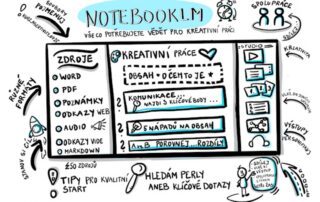 NOTEBOOKLM
VŠE CO POTŘEBUJETE VĚDĚT PRO KREATIVNÍ PRÁCI
SPOLUPRÁCE
ZDROJE
WORD
PDF
POZNÁMKY
ODKAZY WEB
AUDIO
ODKAZY VIDEO
MARKDOWN
RŮZNÉ FORMÁTY
KREATIVNÍ PRÁCE
OBSAH - O ČEM TO JE
KOMUNIKACE...
NAJDI 3 KLÍČOVÉ BODY...
5 NÁPADŮ NA OBSAH
A vs B POROVNEJ... ROZDÍLY
STUDIO
KREATIVITA
VÝSTUPY
TIPY PRO KVALITNÍ
START
HLEDÁM PERLY
ANEB KLÍČOVÉ DOTAZY